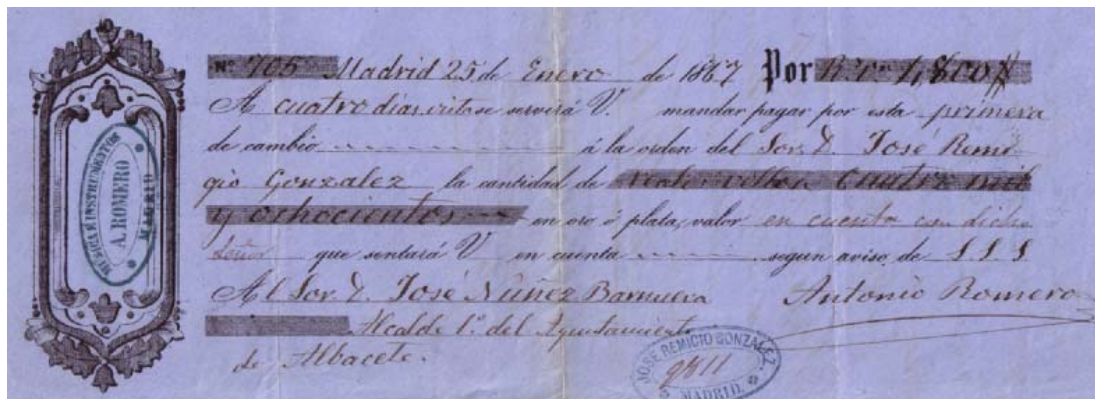 MUSICA É INSTRUMENTOS
A. ROMERO
MADRID
Nº 705 Madrid 25 de Enero de 1867 Por R.s vn 4,800 $
A cuatro dias vista se servirá V. mandar pagar por esta primera
de cambio á la orden del Sor. D. José Remi-
gio Gonzalez la cantidad de reales vellon Cuatro mil
y ochocientos en oro ó plata, valor en cuenta con dicho
Señor que sentará V en cuenta segun aviso de S.S.S
Al Sor. D. José Núñez Barnueva Antonio Romero
Alcalde 1º del Ayuntamiento
de Albacete.
JOSÉ REMIGIO GONZALEZ.
9811
MADRID.